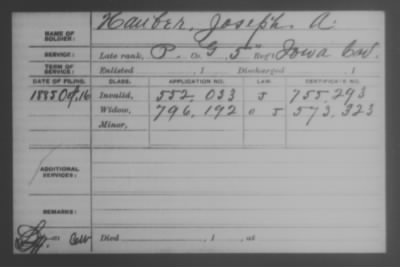 NAME OF SOLDIER: Hauber, Joseph A.
SERVICE: Late rank, P. Co. G, 5" Reg't Iowa Cav.
TERM OF SERVICE: Enlisted , 1 Discharged , 1
DATE OF FILING. CLASS. APPLICATION NO. LAW. CERTIFICATE NO.
1885 Oct. 16 Invalid, 552.033 J 755.293
Widow, 796.192 O J 573.323
Minor,
ADDITIONAL SERVICES:
REMARKS:
Died , 1 , at